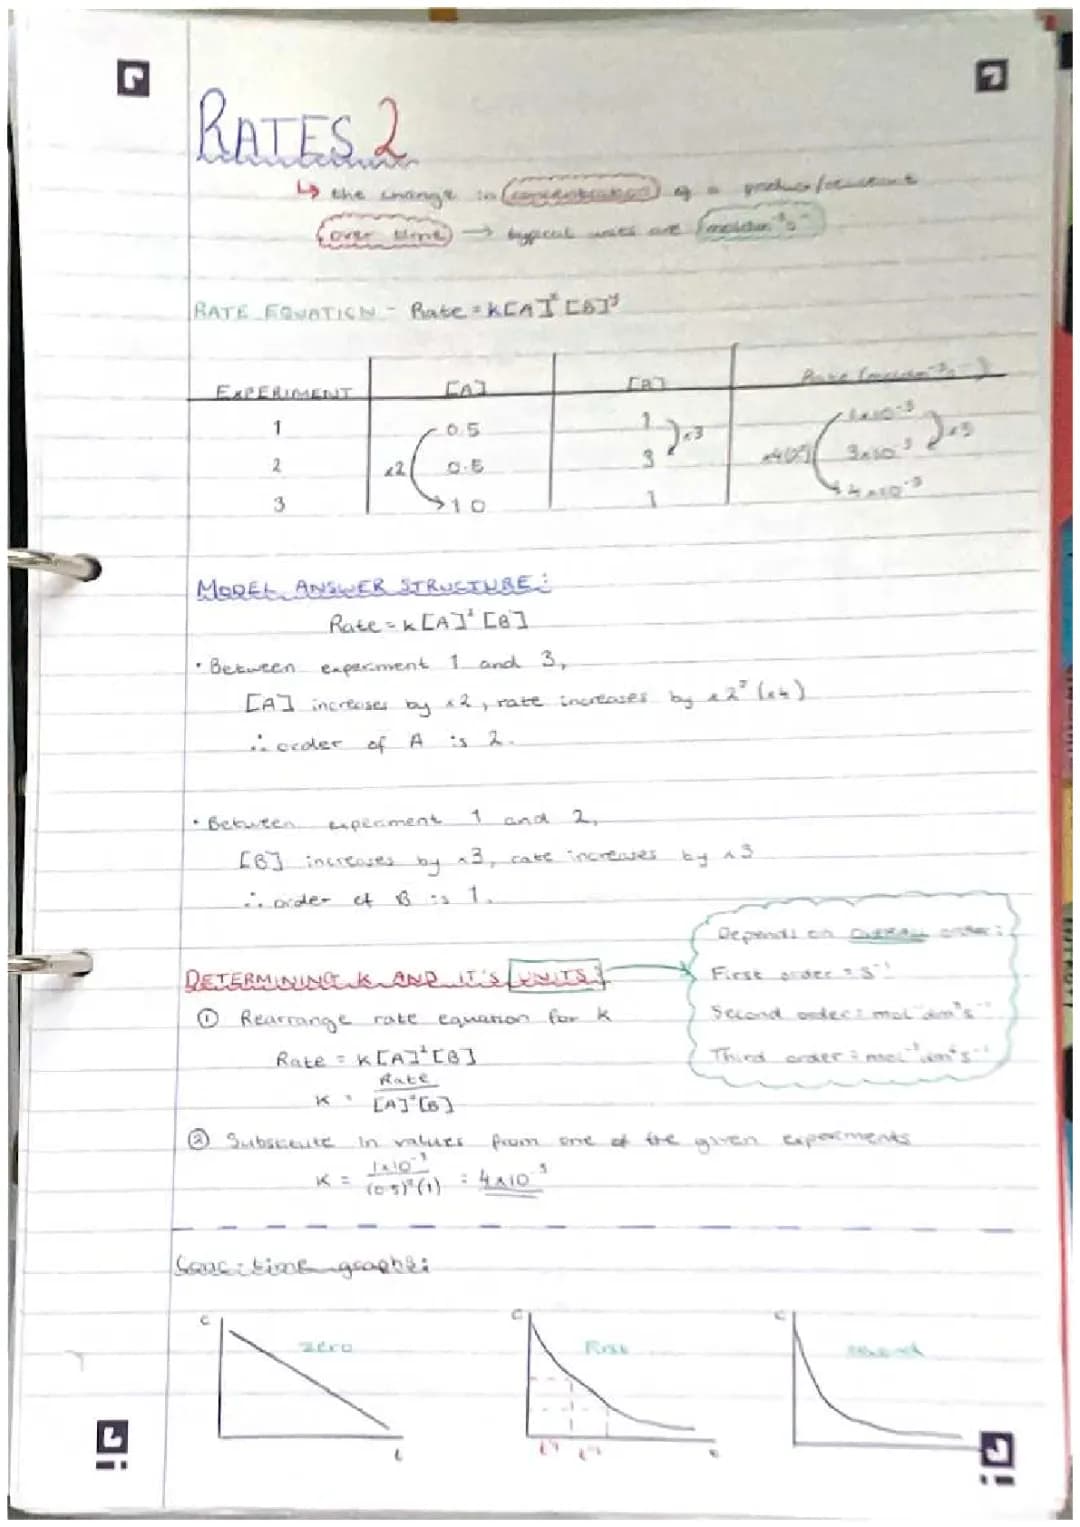 RATES 2
↳ the change in concentration of a product/reactant
over time → typical units are moldm⁻³s⁻¹
RATE EQUATION - Rate = k[A]ˣ [B]ʸ
EXPERIMENT [A] [B] Rate (moldm⁻³s⁻¹)
1 0.5 1 1x10⁻³
x3 x3
2 x2 0.5 3 x4(2²) 3x10⁻³
3 1.0 1 4x10⁻³
MODEL ANSWER STRUCTURE:
Rate = k[A]² [B]
• Between experiment 1 and 3,
[A] increases by x2, rate increases by x2² (x4)
∴ order of A is 2.
• Between experiment 1 and 2,
[B] increases by x3, rate increases by x3
∴ order of B is 1.
Depends on OVERALL order:
First order = s⁻¹
Second order = mol⁻¹dm³s⁻¹
Third order = mol⁻²dm⁶s⁻¹
DETERMINING K AND IT'S UNITS:
① Rearrange rate equation for K
Rate = K[A]²[B]
K = Rate / [A]²[B]
② Substitute in values from one of the given experiments
K = 1x10⁻³ / (0.5)²(1) = 4x10⁻³
Conc:time graphs:
c zero t
c First t½ t½ t
c second